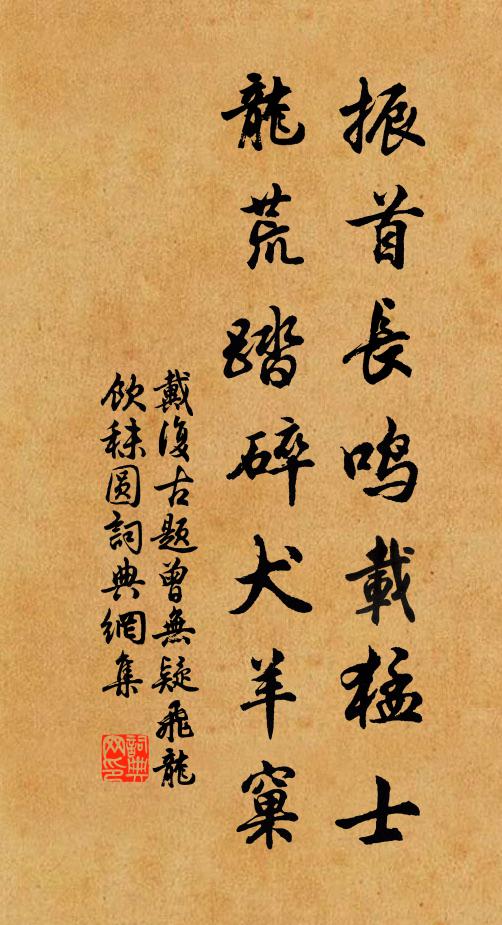 振首長鳴載猛士
龍荒踏碎犬羊窠
戴復古題曾無疑飛龍
飲秣圖詞典網集
詞典
网印